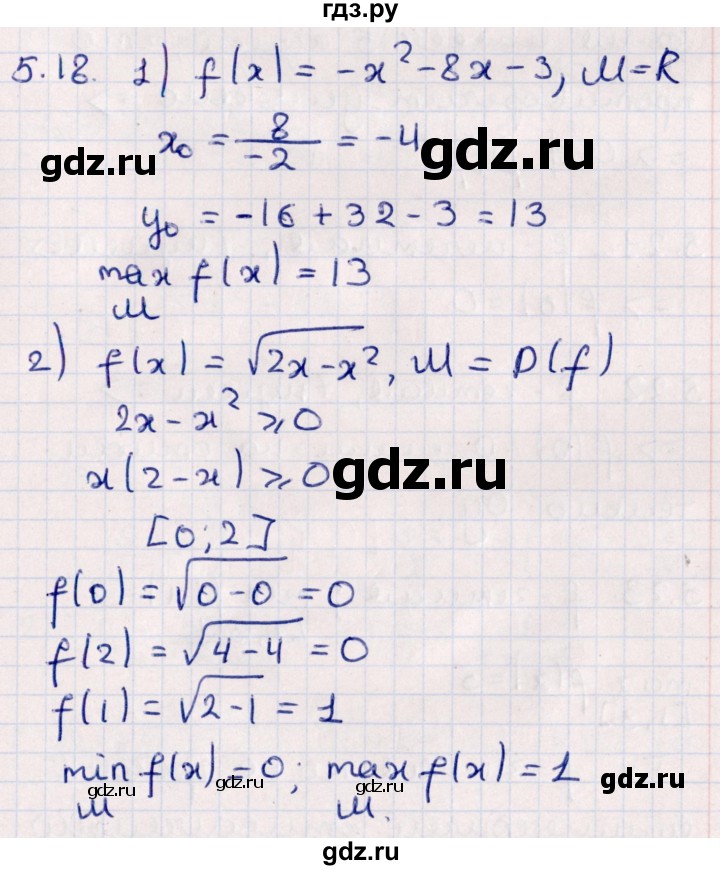 гдз.ру
5.18. 1) f(x) = -x² - 8x - 3, M = R
x₀ = 8/-2 = -4
gdz.ru gdz.ru
y₀ = -16 + 32 - 3 = 13
max f(x) = 13
M
2) f(x) = √(2x - x²), M = D(f)
2x - x² ⩾ 0
x(2 - x) ⩾ 0 gdz.ru
[0; 2]
f(0) = √(0 - 0) = 0
f(2) = √(4 - 4) = 0
f(1) = √(2 - 1) = 1
min f(x) = 0; max f(x) = 1 gdz.ru
gdz.ru gdz.ru
M M.
gdz.ru